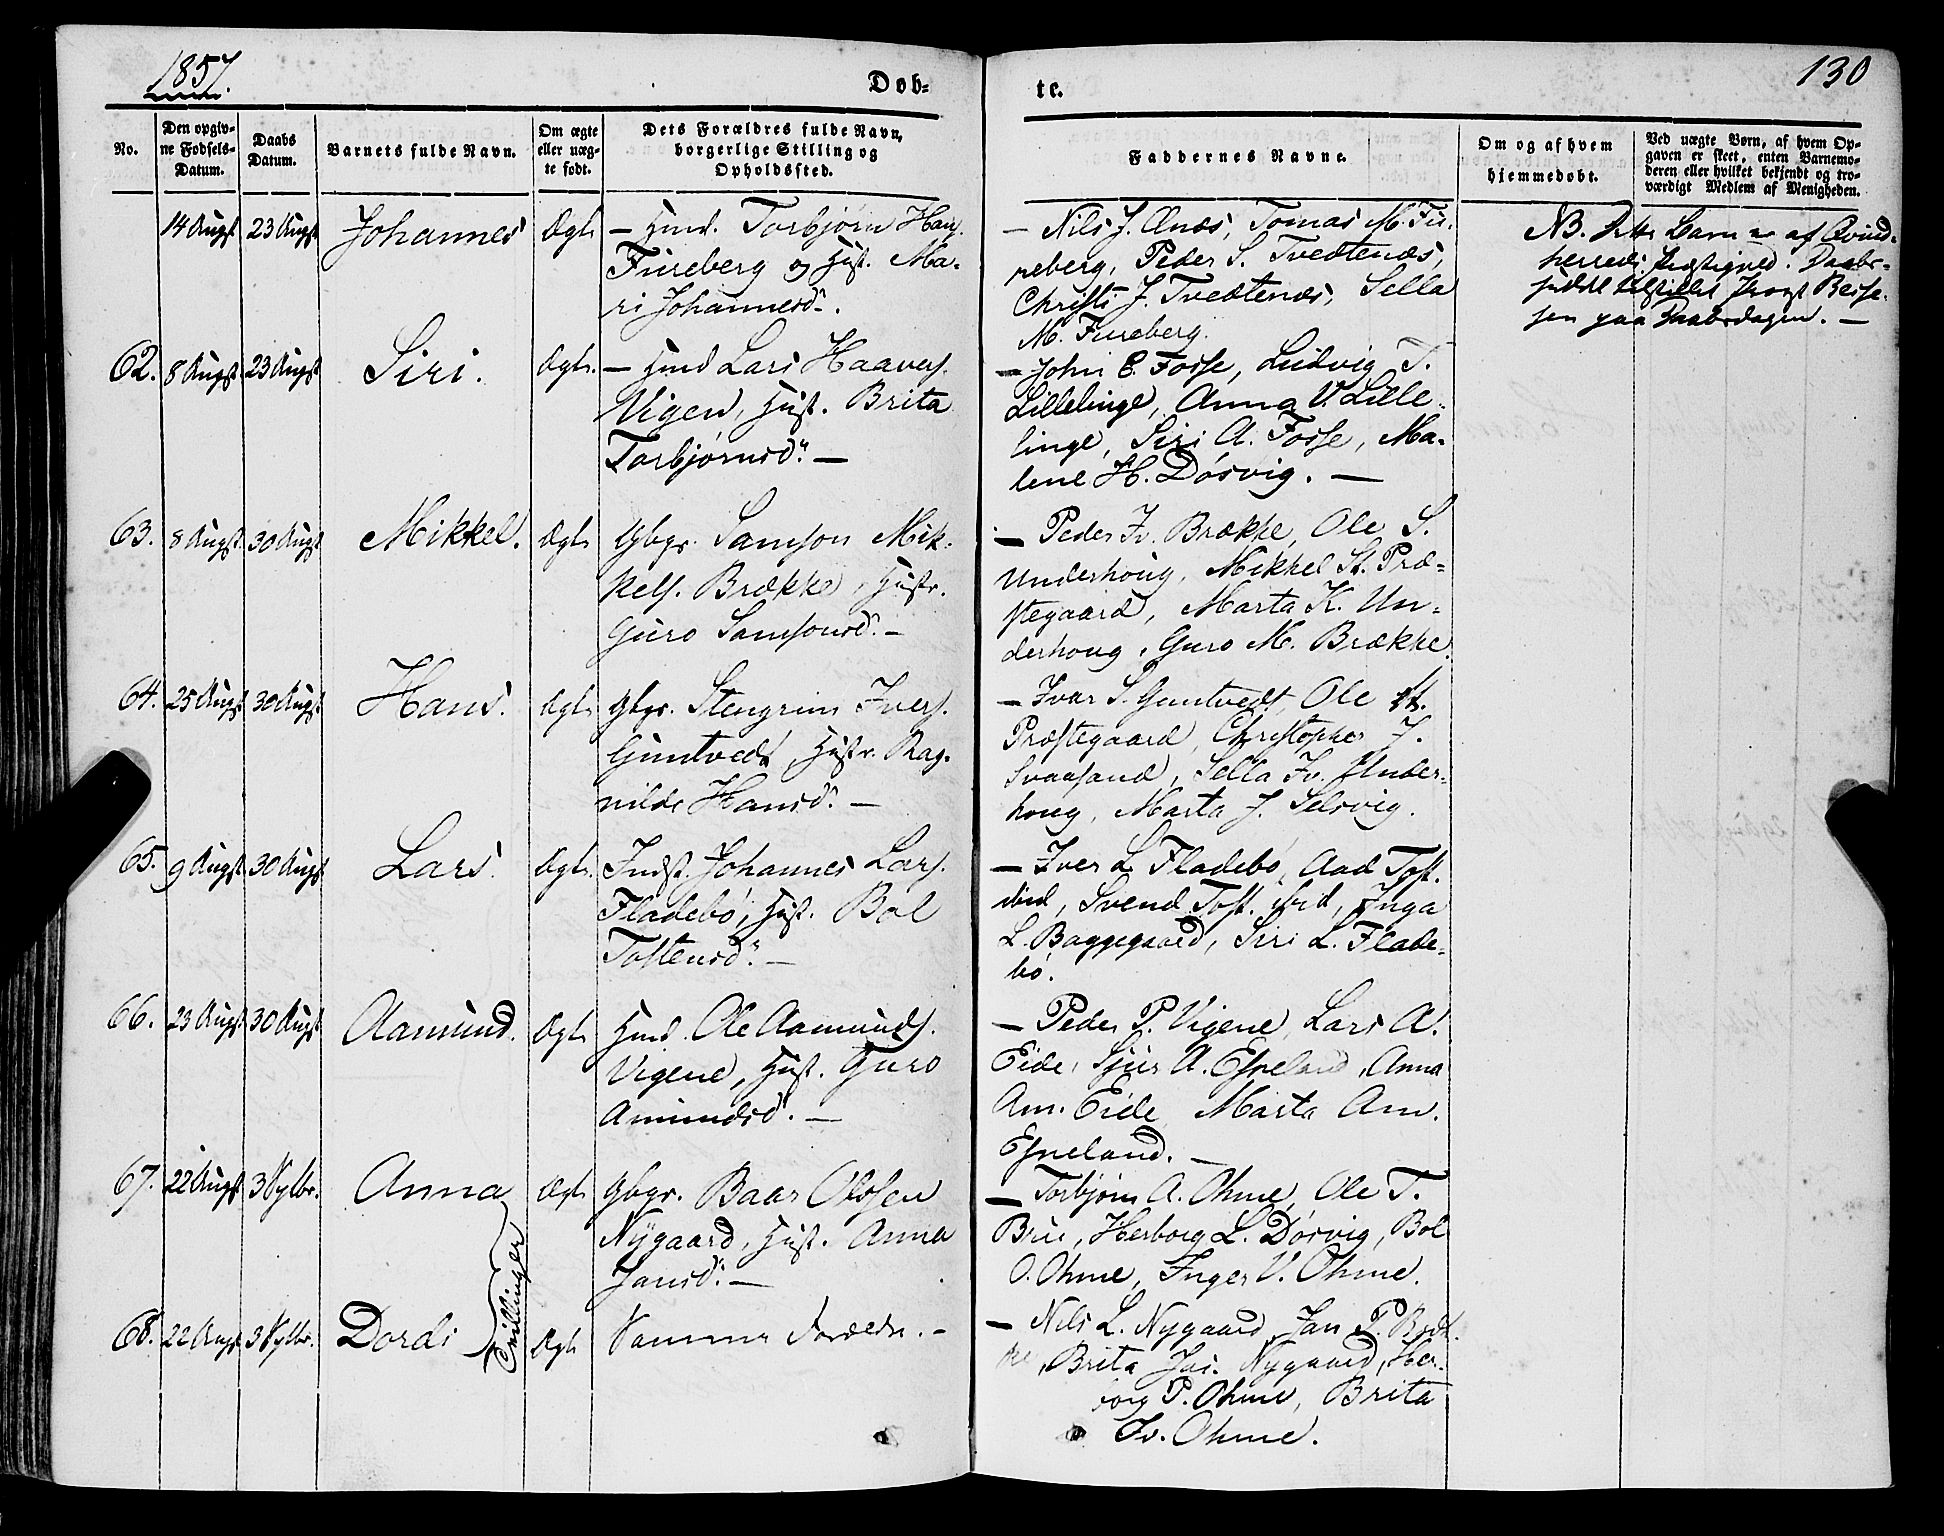 1857.
Døb-
te.
130
No.
Den opgiv-
ne Fødsels-
Datum.
Daabs
Datum.
Barnets fulde Navn.
Om ægte
eller uæg-
te født.
Dets Forældres fulde Navn,
borgerlige Stilling og
Opholdssted.
Faddernes Navne.
Om og af hvem
hjemmedøbt.
Ved uægte Børn, af hvem Op-
gaven er skeet, enten Barnemo-
deren eller hvilket bekjendt og tro-
værdigt Medlem af Menigheden.
14 Augst 23 Augst Johannes Ægte
— Hmd. Torbjørn Hans.
Fureberg og Hust. Ma-
ri Johannesd.
— Nils J. Ænæs, Tomas M. Fu-
reberg, Peder S. Tvedtenæs,
Christi J. Tvedtenæs, Sella
M. Fureberg.
NB. dette Barn er af Qvind-
herreds Præstegjeld. Daabs-
paa Daabsdagen. —
62. 8 Augst 23 Augst Siri. Ægte.
— Hmd Lars Haavers.
Vigen, Hust. Brita
Torbjørnsd. —
— John E. Fosse, Ludvig T.
Lillelinge, Anna V. Lille-
linge, Siri A. Fosse, Ma-
lene H. Dørvig. —
63. 8 Augst 30 Augst Mikkel. Ægte
Gbgr. Samson Mik-
kels. Brække, Hustr.
Guro Samsonsd. —
— Peder Iv. Brække, Ole S.
Underhoug, Mikkel St. Præ-
stegaard, Marta K. Un-
derhoug, Guro M. Brække.
64. 25 Augst 30 Augst Hans. Ægte
Gbgr. Stengrim Ivers.
Guntvedt, Hustr. Rag-
nilde Hansd. —
— Ivar S. Guntvedt, Ole St.
Præstegaard, Christopher J.
Svaasand, Sella Iv. Under-
houg, Marta J. Selsvig.
65. 9 Augst 30 Augst Lars. Ægte.
Indst. Johannes Lars.
Fladebø, Hust. Bol
Tostensd. —
— Iver L. Fladebø, Aad Tost.
ibid, Svend Tost. ibid, Inga
L. Baggegaard, Siri L. Flade-
bø.
66. 23 Augst 30 Augst Aamund. Ægte
Hmd. Ole Aamunds.
Vigene, Hust. Guro
Amundsd. —
— Peder P. Vigene, Lars A.
Eide, Sjur A. Espeland, Anna
Am. Eide, Marta Am.
Espeland. —
67. 22 Augst 3 Sptbr. Anna Ægte
Gbgr. Baar Olssen
Nygaard, Hust. Anna
Jansd. —
— Torbjørn A. Ohme, Ole T.
Brue, Herborg L. Dørvig, Bol
O. Ohme, Inger V. Ohme.
Tvillinger
68. 22 Augst 3 Sptbr. Dordi Ægte
Samme Forældr. —
— Nils L. Nygaard, Jan P.
Brita Jas. Nygaard, Her-
borg P. Ohme, Brita
Iv. Ohme.